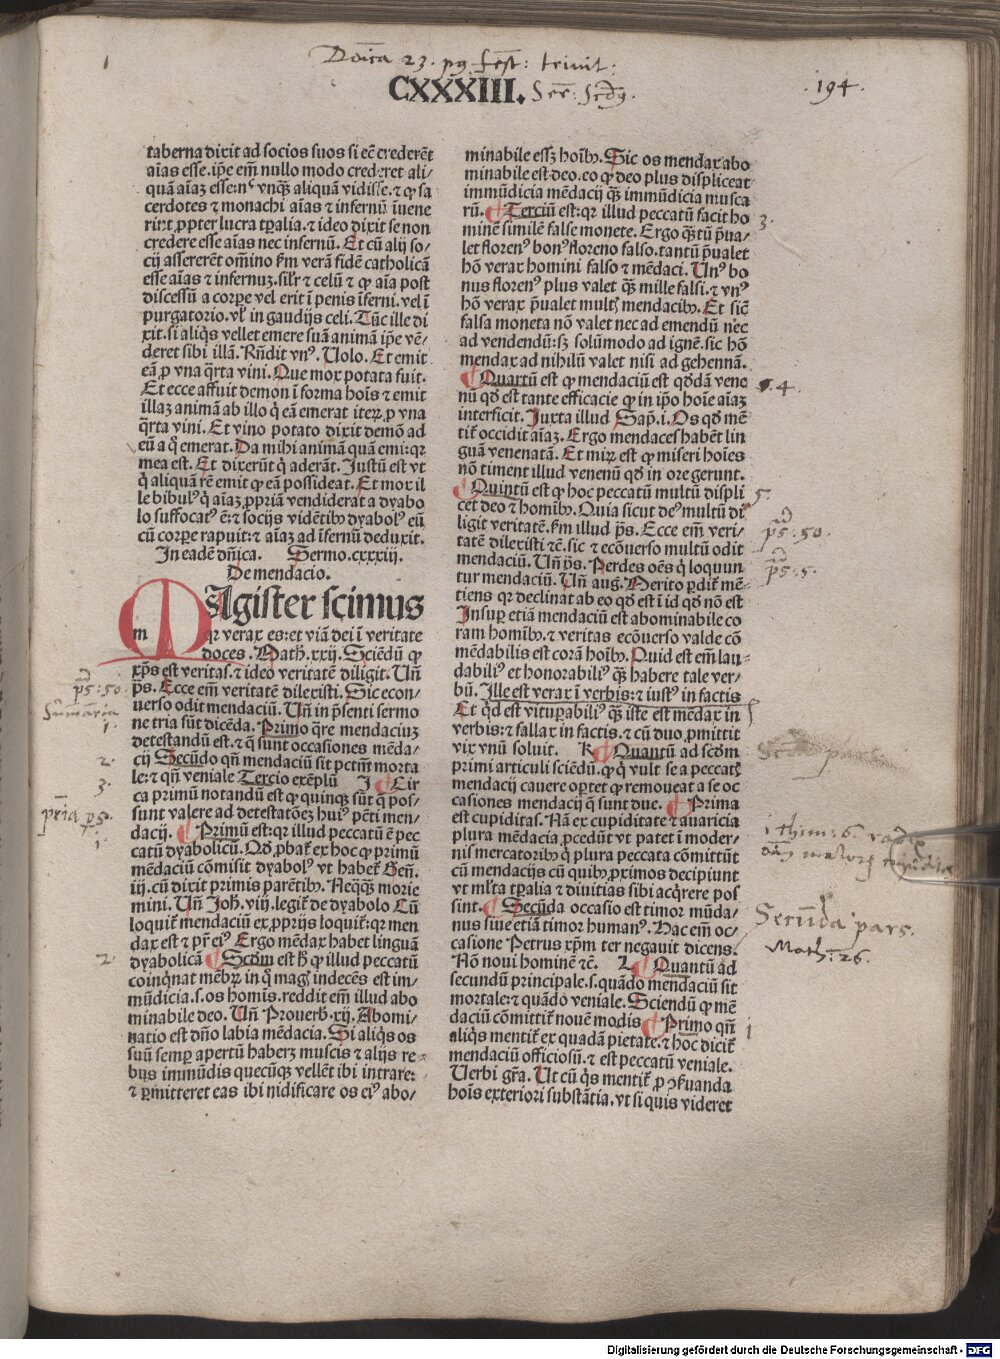 Dnica 23. pꝰ fest: trinit.
CXXXIII. Ser: Scdꝰ.
.194.
taberna dixit ad socios suos si eē crederēt
aīas esse. ip̄e em̄ nullo modo crederet ali/
quā aīaꝫ esse: nec vnqꝫ aliquā vidisse. ⁊ ꝙ sa
cerdotes ⁊ monachi aīas ⁊ infernū īuene
rint ꝓpter lucra tp̄alia. ⁊ ideo dixit se non
credere esse aīas nec infernū. Et cū alij so/
cij assererēt om̄ino ẜm verā fidē catholicā
esse aīas ⁊ infernuꝫ. sil'r ⁊ celū ⁊ ꝙ aīa post
discessū a corpe vel erit ī penis īferni. vel ī
purgatorio. vl' in gaudijs celi. Tūc ille di
xit. si aliq̄s vellet emere suā animā ip̄e vē/
deret sibi illā. Rn̄dit vnꝰ. Uolo. Et emit
eā ꝓ vna q̄rta vini. Que mox potata fuit.
Et ecce affuit demon ī forma hoīs ⁊ emit
illaꝫ animā ab illo q̄ eā emerat iteꝝ ꝓ vna
q̄rta vini. Et vino potato dixit demō ad
eū a q̄ emerat. Da mihi animā quā emi: qꝛ
mea est. Et dixerūt q̄ aderāt. Justū est vt
q̄ aliquā rē emit ꝙ eā possideat. Et mox il
le bibulꝰ q̄ aīaꝫ ꝓpriā vendiderat a dyabo
lo suffocatꝰ ē: ⁊ socijs vidētibꝰ dyabolꝰ eū
cū corpe rapuit: ⁊ aīaꝫ ad īfernū deduxit.
In eadē dn̄ica. Sermo. cxxxiij.
De mendacio.
MAgister scimus
qꝛ verax es: et viā dei ī veritate
doces. Math. xxij. Sciēdū ꝙ
xp̄s est veritas. ⁊ ideo veritatē diligit. Un̄
ps. Ecce em̄ veritatē dilexisti. Sic econ/
uerso odit mendaciū. Un̄ in p̄senti sermo
ne tria sūt dicēda. Primo q̄re mendaciuꝫ
detestandū est. ⁊ q̄ sunt occasiones mēda/
cij Secūdo qn̄ mendaciū sit pctm̄ morta
le: ⁊ qn̄ veniale Tercio exēplū I Cir
ca primū notandū est ꝙ quinqꝫ sūt q̄ pos/
sunt valere ad detestatōeꝫ huiꝰ pcti men/
dacij. Primū est: qꝛ illud peccatū ē pec
catū dyabolicū. Qd̓ ꝓbaꞇ̄ ex hoc ꝙ primū
mēdaciū cōmisit dyabolꝰ vt habeꞇ̄ Gen̄.
iij. cū dixit primis parētibꝰ. Neqꝗꝫ morie
mini. Un̄ Joh̄. viij. legiꞇ̄ de dyabolo Cū
loquiꞇ̄ mendaciū ex ꝓprijs loquiꞇ̄: qꝛ men
dax est ⁊ pr̄ eiꝰ Ergo mēdax habet linguā
dyabolicā Scd̓m est ꝙ illud peccatū
coinq̄nat mēbꝝ in q̄ magꝭ indecēs est im/
mūdicia. s. os homis. reddit em̄ illud abo
minabile deo. Un̄ Prouerb̄. xij. Abomi/
natio est dn̄o labia mēdacia. Si aliq̄s os
suū semꝑ apertū haberꝫ muscis ⁊ alijs re/
bus immūdis quecūqꝫ vellēt ibi intrare:
⁊ ꝑmitteret eas ibi nidificare os eiꝰ abo/
minabile essꝫ hoībꝰ. Sic os mendax abo
minabile est deo. eo ꝙ deo plus displiceat
immūdicia mēdacij qꝫ immūdicia musca
rū. Terciū est: qꝛ illud peccatū facit ho
minē similē false monete. Ergo qꝫtū p̄ua/
let florenꝰ bonꝰ floreno falso. tantū p̄ualet
hō verax homini falso ⁊ mēdaci. Unꝰ bo
nus florenꝰ plus valet qꝫ mille falsi. ⁊ vnꝰ
hō verax p̄ualet multꝭ mendacibꝰ. Et sic̄
falsa moneta nō valet nec ad emendū nec
ad vendendū: sꝫ solūmodo ad ignē. sic hō
mendax ad nihilū valet nisi ad gehennā.
Quartū est ꝙ mendaciū est qd̓dā vene
nū qd̓ est tante efficacie ꝙ in ip̄o hoīe aīaꝫ
interficit. Juxta illud Sap̄. i. Os qd̓ mē
tiꞇ̄ occidit aīaꝫ. Ergo mendaces habēt lin
guā venenatā. Et miꝝ est ꝙ miseri hoīes
nō timent illud venenū qd̓ in ore gerunt.
Quintū est ꝙ hoc peccatū multū displi
cet deo ⁊ hoībꝰ. Quia sicut deꝰ multū di
ligit veritatē. ẜm illud ps. Ecce em̄ veri/
tatē dilexisti ⁊c̄. sic ⁊ ecōuerso multū odit
mendaciū. Un̄ ps. Perdes oēs q̄ loquun
tur mendaciū. Un̄ aug. Merito ꝑdiꞇ̄ mē/
tiens qꝛ declinat ab eo qd̓ est ī id qd̓ nō est
Insuꝑ etiā mendaciū est abominabile co
ram hoībꝰ. ⁊ veritas ecōuerso valde cō
mēdabilis est corā hoībꝰ. Quid est em̄ lau/
dabiliꝰ et honorabiliꝰ qꝫ habere tale ver/
bū. Ille est verax ī verbis: ⁊ iustꝰ in factis
Et qd̓ est vituꝑabiliꝰ qꝫ iste est mēdax in
verbis: ⁊ fallax in factis. ⁊ cū duo ꝓmittit
vix vnū soluit. K Quantū ad scd̓m
primi articuli sciēdū. ꝙ q̄ vult se a peccatꝭ
mendacij cauere oportet ꝙ remoueat a se oc
casiones mendacij q̄ sunt due. Prima
est cupiditas. Nā ex cupiditate ⁊ auaricia
plura mēdacia ꝓcedūt vt patet ī moder/
nis mercatoribꝰ q̄ plura peccata cōmittūt
cū mendacijs cū quibꝰ ꝓximos decipiunt
vt mlta tp̄alia ⁊ diuitias sibi acq̄rere pos
sint. Secūda occasio est timor mūda/
nus siue etiā timor humanꝰ. Hac em̄ oc/
casione Petrus xp̄m ter negauit dicens.
Nō noui hominē ⁊c̄. L Quantū ad
secundū principale. s. quādo mendaciū sit
mortale: ⁊ quādo veniale. Sciendū ꝙ mē
daciū cōmittiꞇ̄ nouē modis Primo qn̄
aliq̄s mentiꞇ̄ ex quadā pietate. ⁊ hoc diciꞇ̄
mendaciū officiosū. ⁊ est peccatū veniale.
Uerbi gr̄a. Ut cū q̄s mentiꞇ̄ ꝓ ꝯẜuanda
hoīs exteriori substātia. vt si quis videret
ps: 50.
1.
2.
3.
1.
2.
3.
4.
5.
ps: 50.
ps: 5.
Secūda pars.
Math. 26.
1
Digitalisierung gefördert durch die Deutsche Forschungsgemeinschaft - DFG